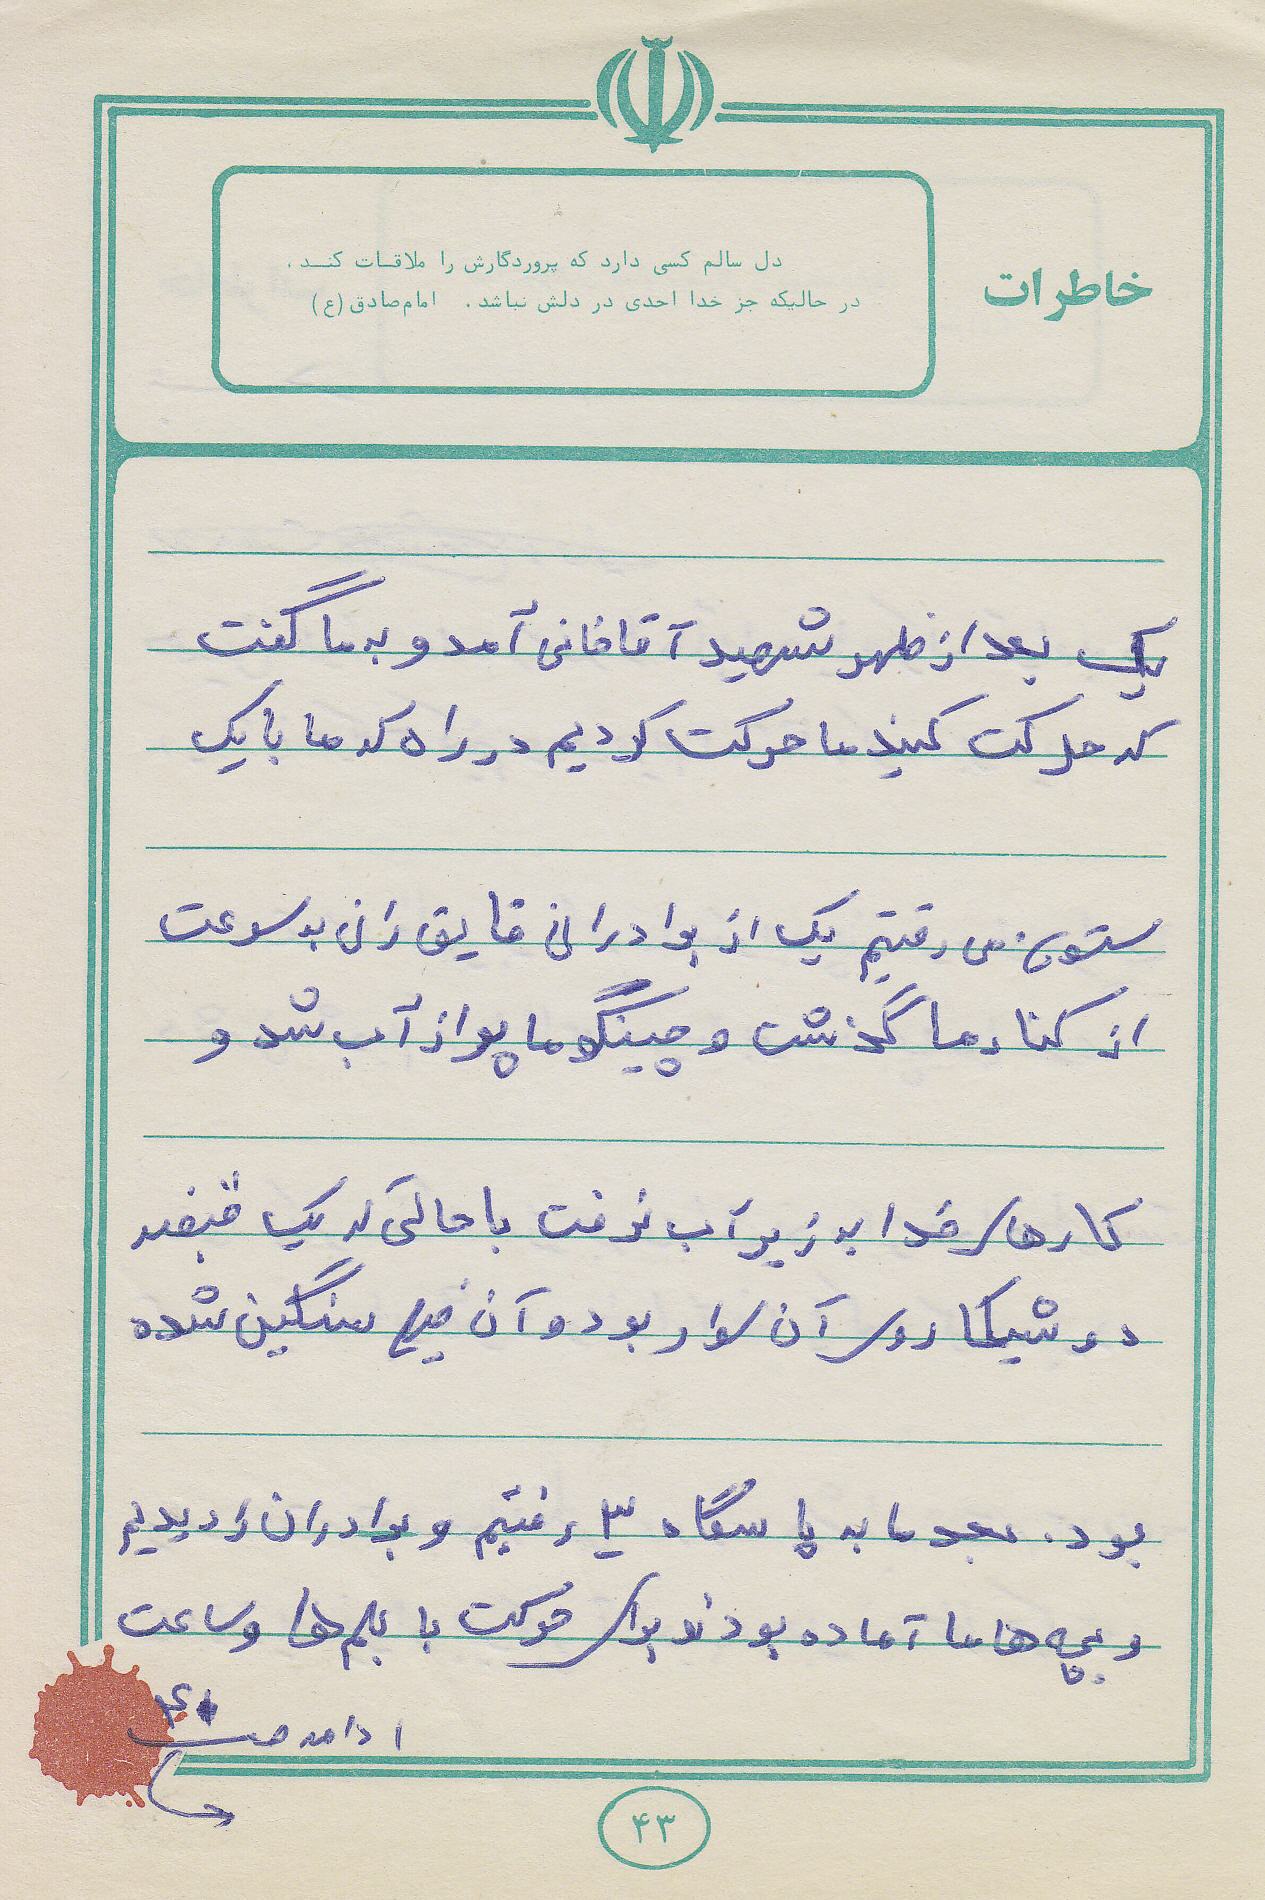 خاطرات
دل سالم کسی دارد که پروردگارش را ملاقات کند.
در حالیکه جز خدا احدی در دلش نباشد. امام صادق (ع)
یک بعد از ظهر شهید آقاخانی آمد و به ما گفت
که حرکت کنید ما حرکت کردیم در راه که ما با یک
ستون می رفتیم یک از برادرانی قایق رانی به سرعت
از کنار ما گذشت و چینکو ما پر از آب شد و
کارهای خدا به زیر آب نرفت با حالی که یک قبضه
دوشیکا روی آن سوار بود و آن خیلی سنگین شده
بود. بعد ما به پاسگاه ۳ رفتیم و برادران را دیدیم
و بچه ها ما آماده بودند برای حرکت با بلم ها و ساعت
ادامه ص
۴۳